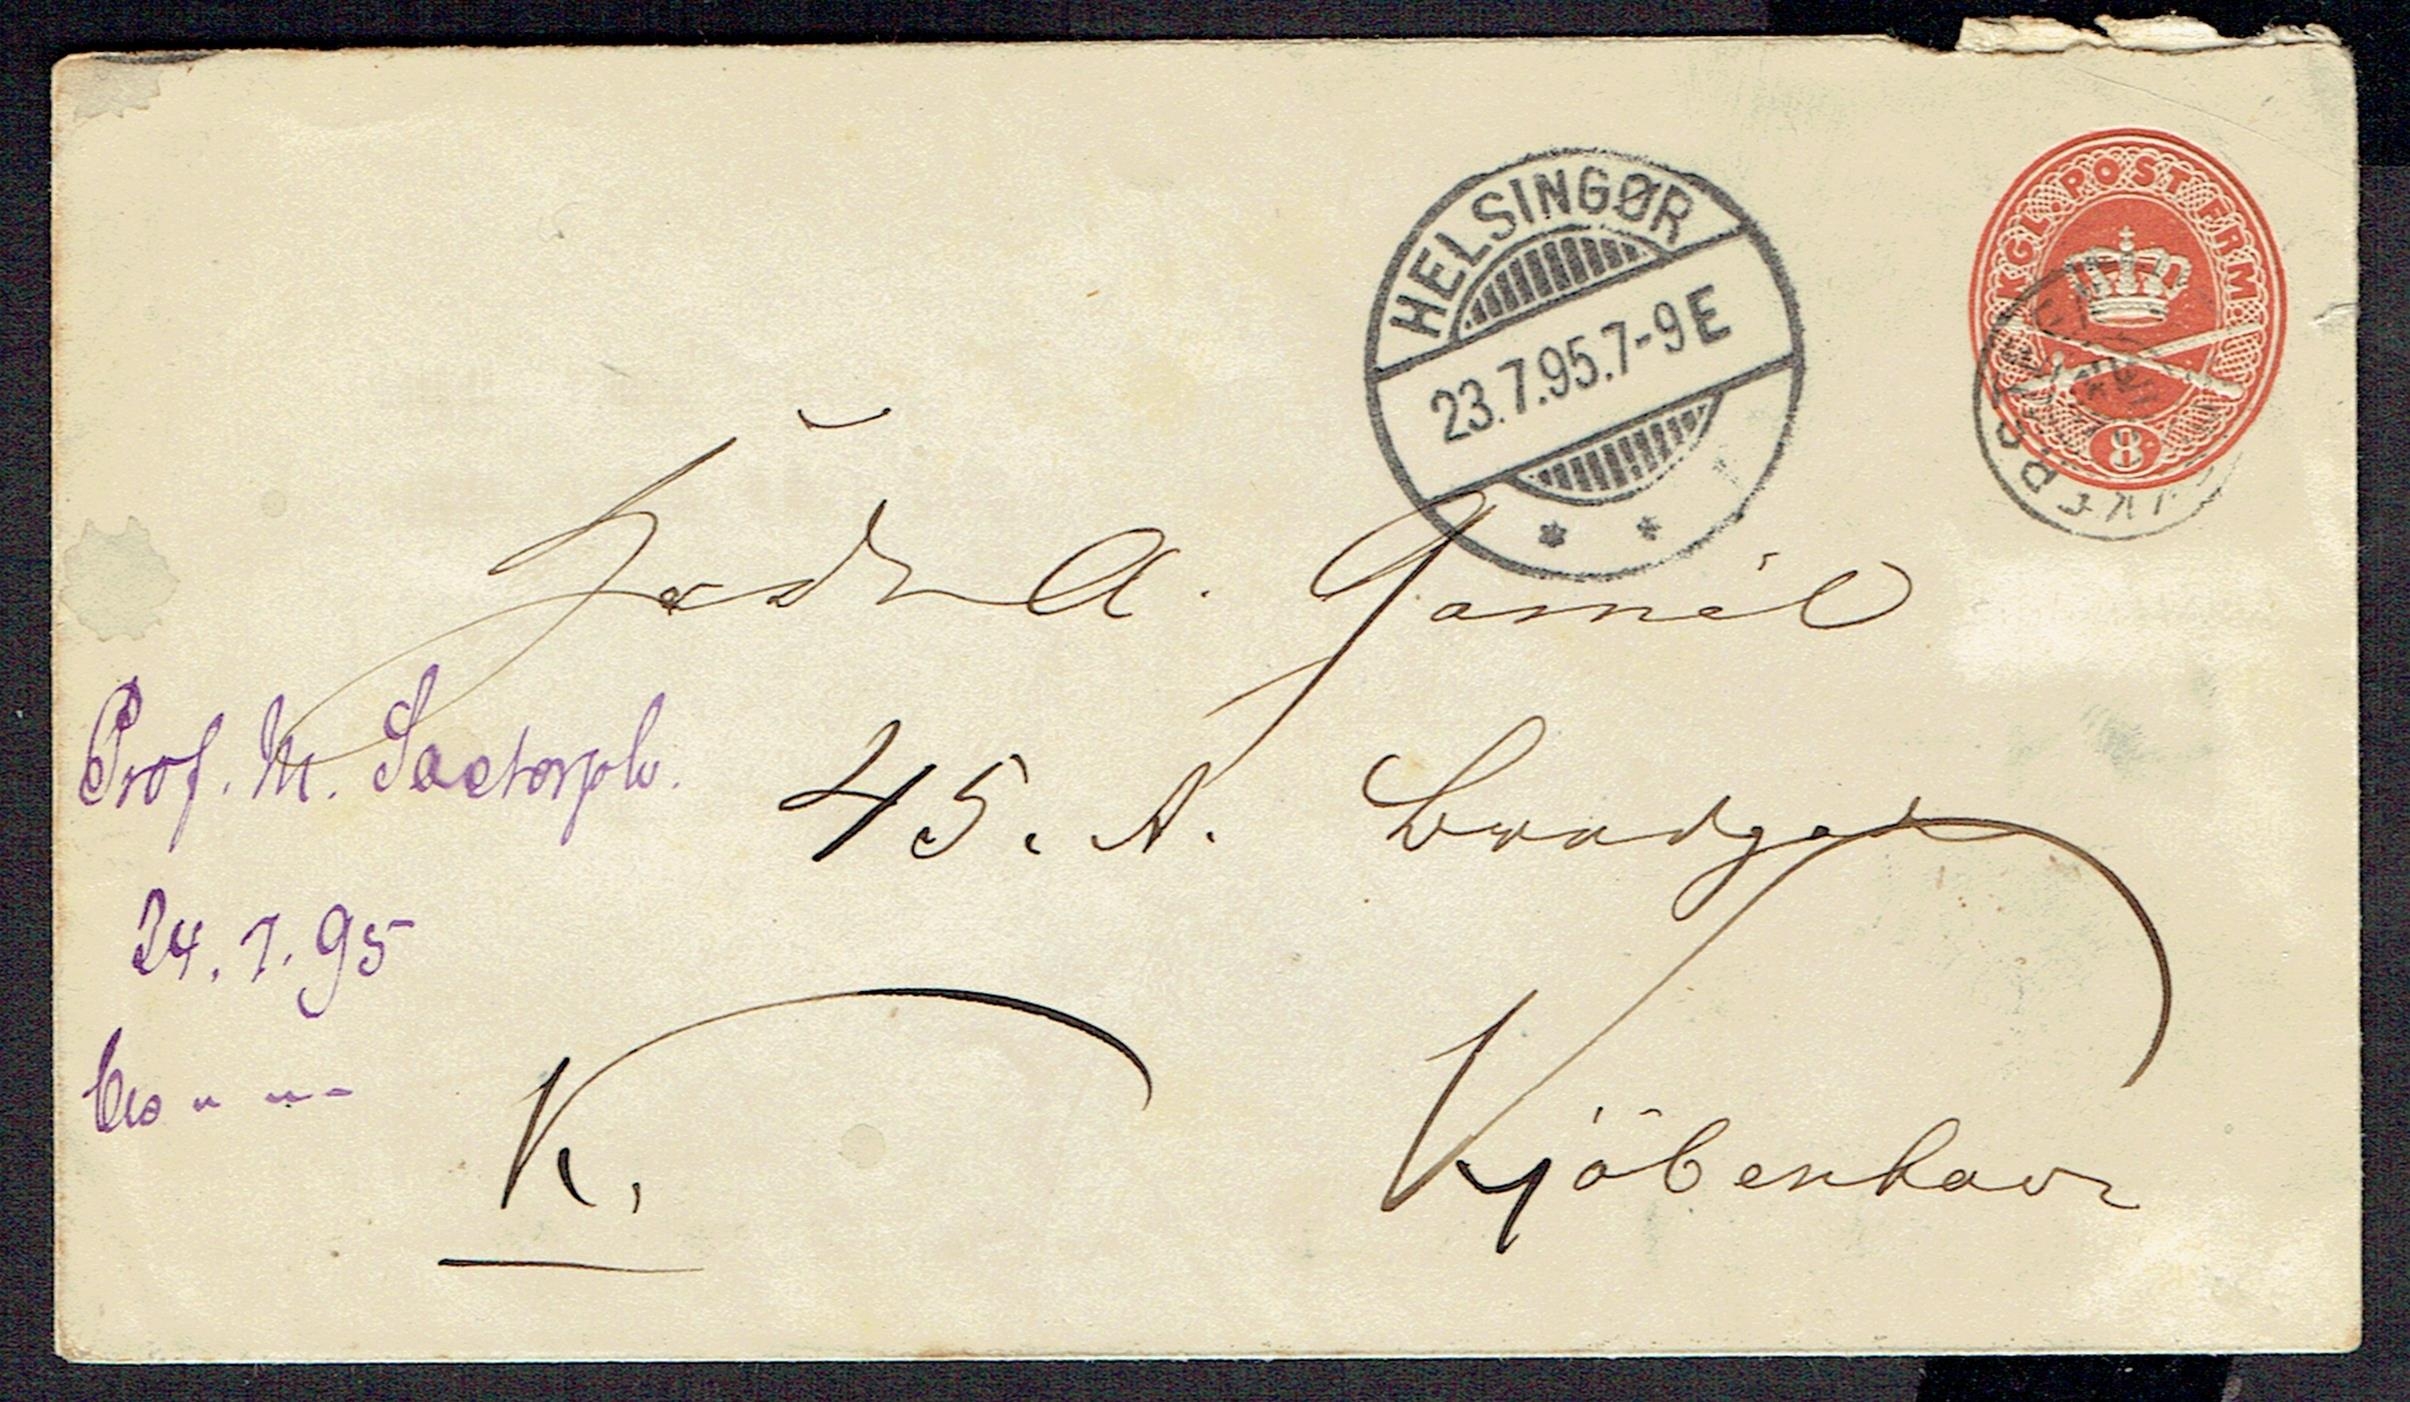 KGL. POST FRM.
8
HELSINGØR
23.7.95.7-9 E
A. Gamél
45. A. Bredgade
Kjöbenhavn
K.
Prof. M.
24. 7. 95